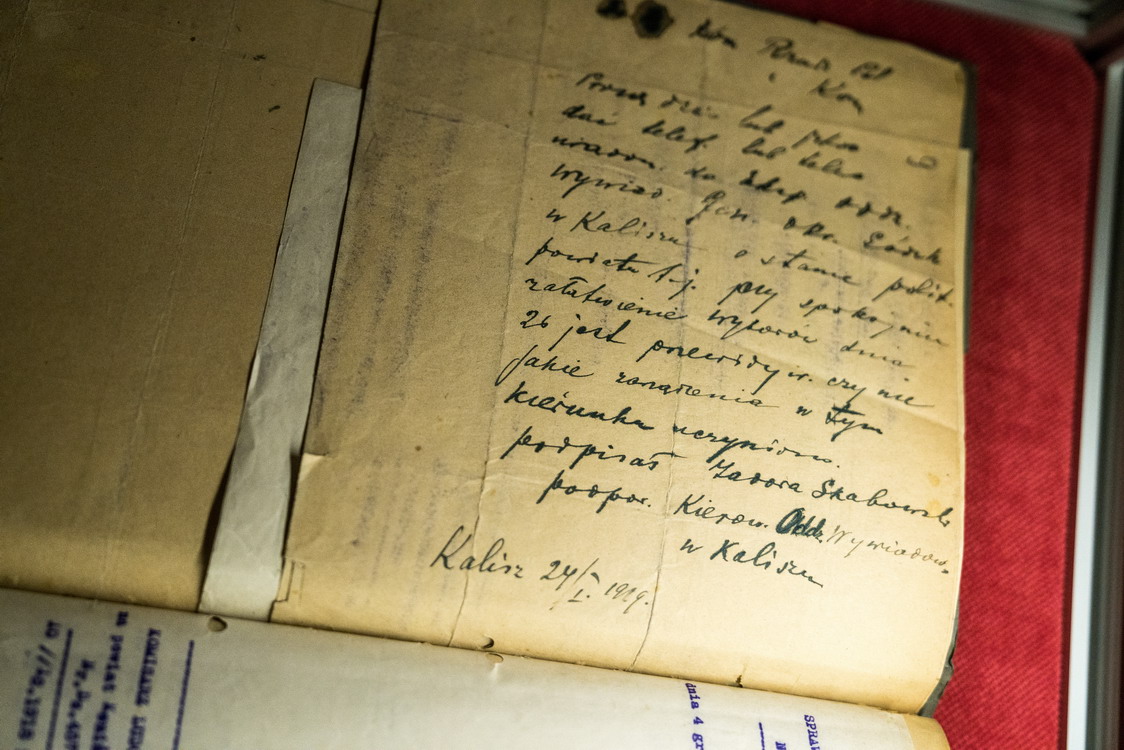 Kom
Proszę dziś lub jutro
dać telef. lub teleg.
uiadom. do Eksp. Oddz.
wywiad. Gen. Okr. Łódzk
w Kaliszu o stanie polit.
powiatu t.j. czy spokojnie
załatwienie wyborów dnia
26 jest przewidyw. czy nie
Jakie zarządzenia w tym
kierunku uczyniono.
podpisał Zadora Skabowski
podpor. Kierow. Oddz. Wywiadow.
w Kaliszu
Kalisz 24/I 1919.
KOMISARZ LUDO
na powiat
dnia 4 gr
SPRAW